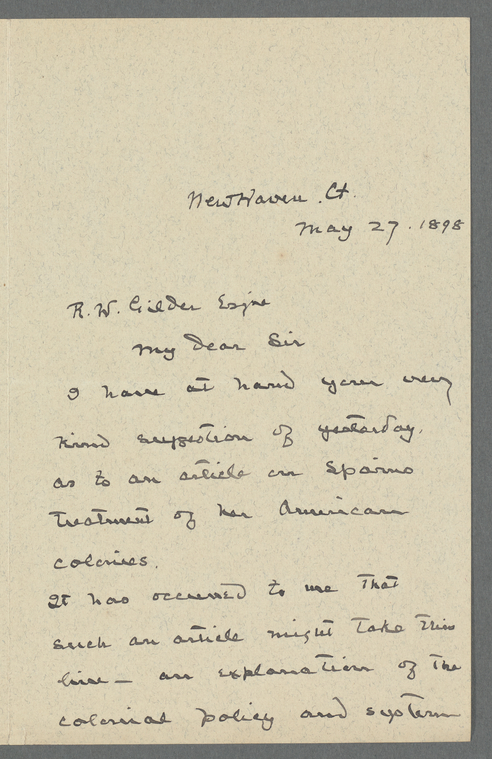 New Haven. Ct.
May 27. 1898
R. W. Gilder Esqre
My dear Sir
I have at hand your very
kind suggestion of yesterday,
as to an article on Spains
treatment of her American
colonies.
It has occurred to me that
such an article might take this
line — an explanation of the
colonial policy and system